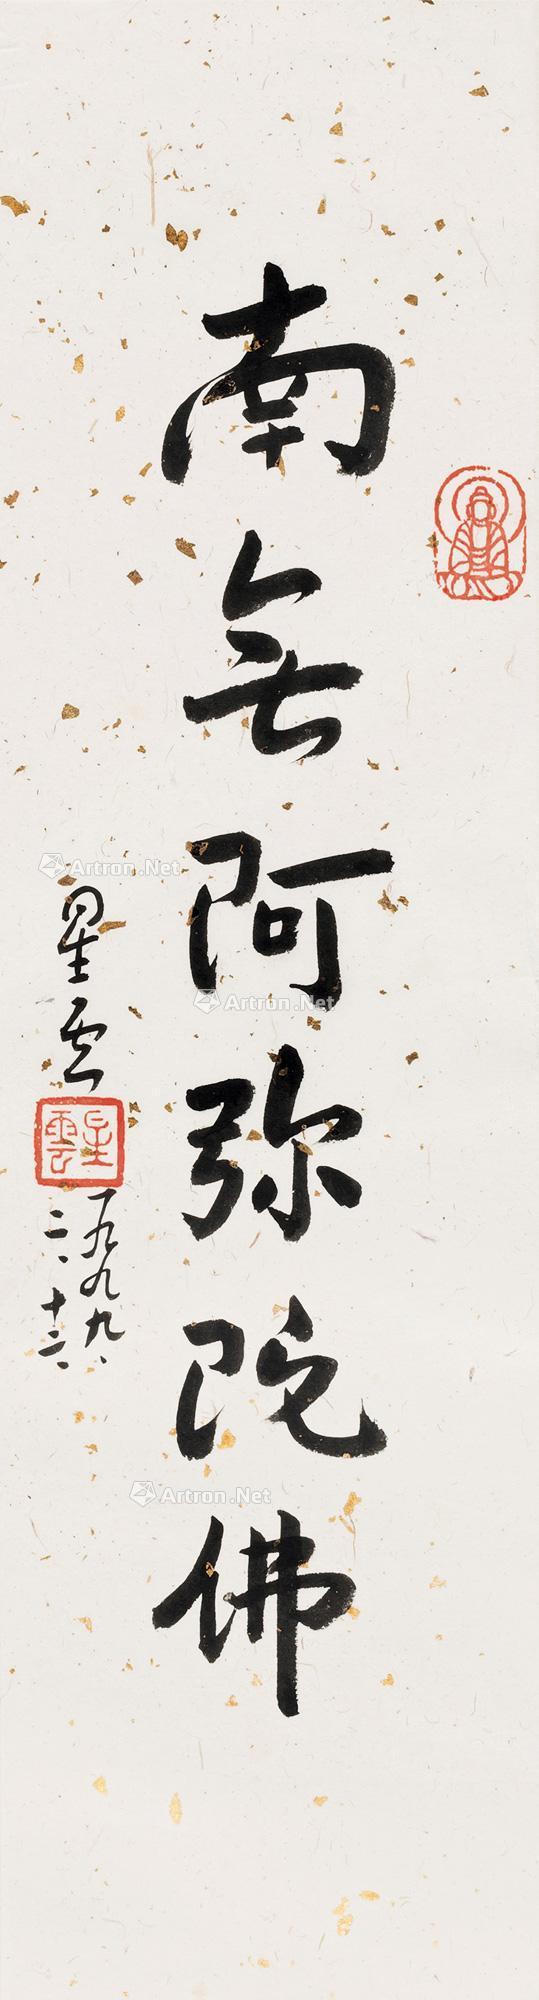 南无阿弥陀佛
星云
星雲
一九九九、
二、十二、
Artron.Net
Artron.Net
Artron.Net